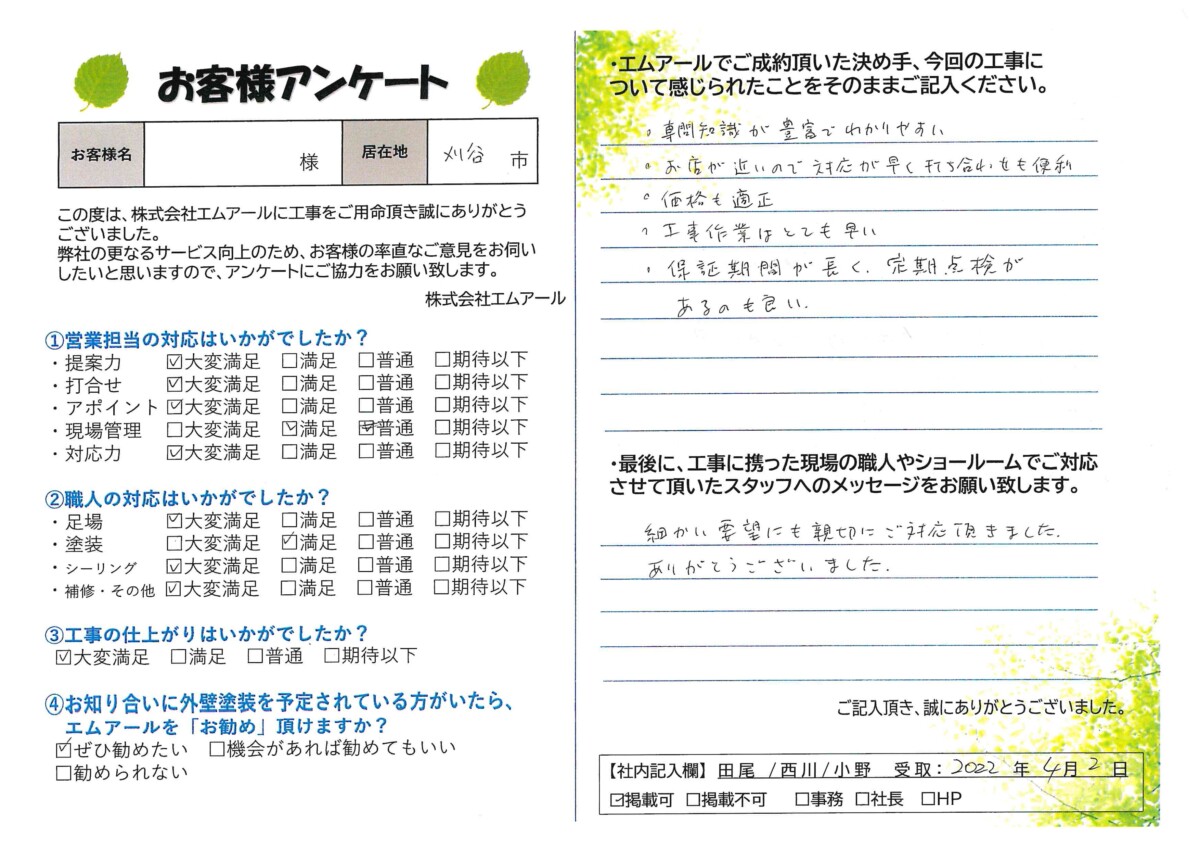 お客様アンケート
お客様名 様 居住地 刈谷 市
この度は、株式会社エムアールに工事をご用命頂き誠にありがとう
ございました。
弊社の更なるサービス向上のため、お客様の率直なご意見をお伺い
したいと思いますので、アンケートにご協力をお願い致します。
株式会社エムアール
①営業担当の対応はいかがでしたか?
・提案力 ☑大変満足 □満足 □普通 □期待以下
・打合せ ☑大変満足 □満足 □普通 □期待以下
・アポイント ☑大変満足 □満足 □普通 □期待以下
・現場管理 □大変満足 ☑満足 ☑普通 □期待以下
・対応力 ☑大変満足 □満足 □普通 □期待以下
②職人の対応はいかがでしたか?
・足場 ☑大変満足 □満足 □普通 □期待以下
・塗装 □大変満足 ☑満足 □普通 □期待以下
・シーリング ☑大変満足 □満足 □普通 □期待以下
・補修・その他 ☑大変満足 □満足 □普通 □期待以下
③工事の仕上がりはいかがでしたか?
☑大変満足 □満足 □普通 □期待以下
④お知り合いに外壁塗装を予定されている方がいたら、
エムアールを「お勧め」頂けますか?
☑ぜひ勧めたい □機会があれば勧めてもいい
□勧められない
・エムアールでご成約頂いた決め手、今回の工事に
ついて感じられたことをそのままご記入ください。
。専門知識が豊富でわかりやすい
。お店が近いので対応が早く打ち合わせも便利
。価格も適正
、工事作業はとても早い
・保証期間が長く、定期点検が
あるのも良い.
・最後に、工事に携った現場の職人やショールームでご対応
させて頂いたスタッフへのメッセージをお願い致します。
細かい要望にも親切にご対応頂きました.
ありがとうございました.
ご記入頂き、誠にありがとうございました。
【社内記入欄】田尾 /西川/小野 受取:2022 年 4月 2 日
☑掲載可 □掲載不可 □事務 □社長 □HP